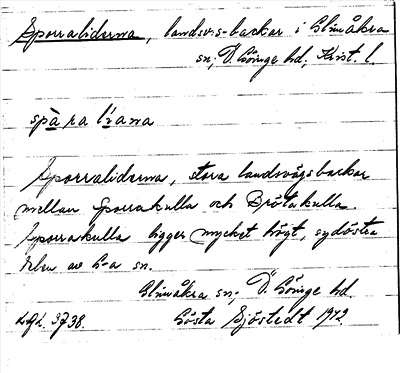 Sporraliderna, landsv:s-backar i Glimåkra
sn; Ö. Göinge hd, Krist. l.
spàra líana
Sporralidarna, stora landsvägsbackar
mellan Sporrakulla och Brötakulla.
Sporrakulla ligger mycket högt, sydöstra
delen av G-a sn.
Glimåkra sn; Ö. Göinge hd.
Gösta Sjöstedt 1942.